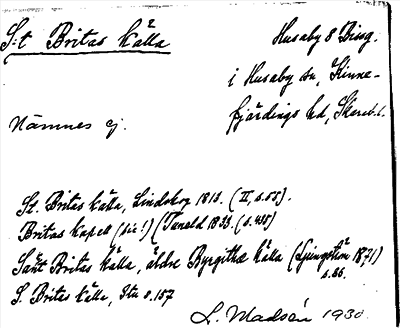 S:t Britas källa
Husaby 8 Bing.
i Husaby sn, Kinne-
fjärdings hd, Skarab. l.
Nämnes ej.
St. Britas källa, Lindskog 1813. (II, s.85).
Britas Kapell (sic!) (Tuneld 1833. (s.438)
Sankt Britas källa, äldre Byrgithæ källa (Ljungström 1871)
s.86.
S. Britas källa, Stu s.157
L. Madsén 1930.